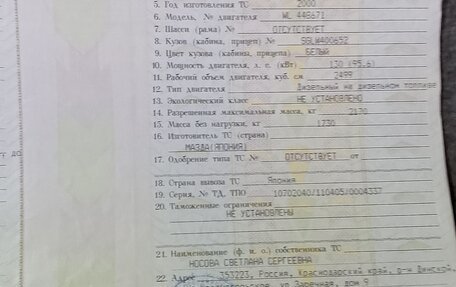 5. Год изготовления ТС 2000
6. Модель, № двигателя WL 448671
7. Шасси (рама) № ОТСУТСТВУЕТ
8. Кузов (кабина, прицеп) № SGLW400652
9. Цвет кузова (кабины, прицепа) БЕЛЫЙ
10. Мощность двигателя, л. с. (кВт) 130 (95.6)
11. Рабочий объем двигателя, куб. см 2499
12. Тип двигателя Дизельный на дизельном топливе
13. Экологический класс НЕ УСТАНОВЛЕНО
14. Разрешенная максимальная масса, кг 2170
15. Масса без нагрузки, кг 1730
16. Изготовитель ТС (страна)
МАЗДА(ЯПОНИЯ)
17. Одобрение типа ТС № ОТСУТСТВУЕТ от
18. Страна вывоза ТС Япония
19. Серия, № ТД, ТПО 10702040/110405/0004337
20. Таможенные ограничения
НЕ УСТАНОВЛЕНЫ
21. Наименование (ф. и. о.) собственника ТС
НОСОВА СВЕТЛАНА СЕРГЕЕВНА
22. Адрес 353223, Россия, Краснодарский край, р-н Динской,
ул Заречная, дом 9